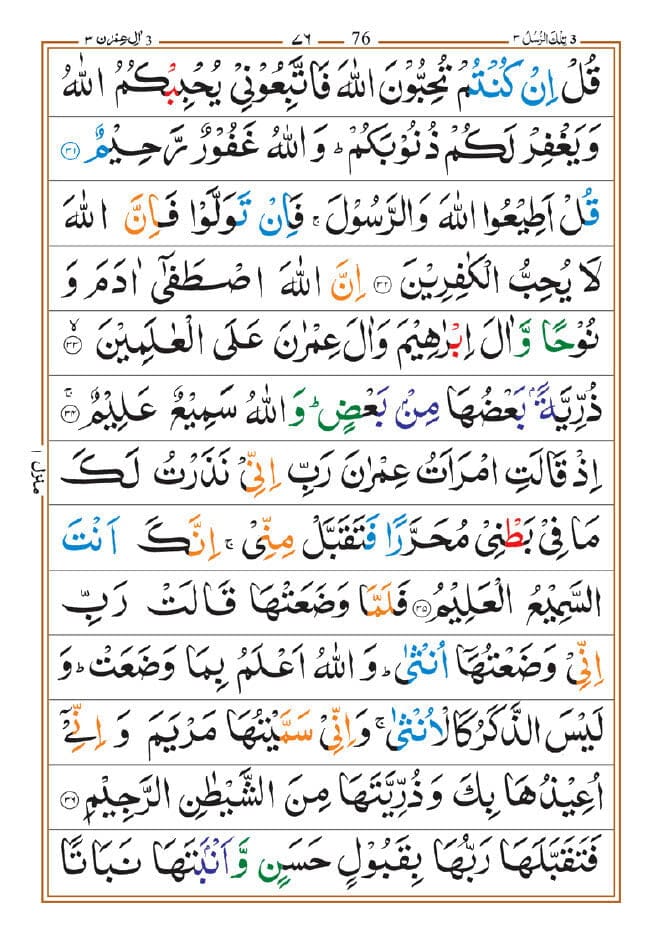 اٰل عِمْرٰن ٣ 3 ٧٦ 76 تِلْكَ الرُّسُلُ ٣ 3
قُلْ اِنْ كُنْتُمْ تُحِبُّوْنَ اللّٰهَ فَاتَّبِعُوْنِيْ يُحْبِبْكُمُ اللّٰهُ
وَيَغْفِرْ لَكُمْ ذُنُوْبَكُمْ ؕ وَاللّٰهُ غَفُوْرٌ رَّحِيْمٌ ٣١
قُلْ اَطِيْعُوا اللّٰهَ وَالرَّسُوْلَ ۚ فَاِنْ تَوَلَّوْا فَاِنَّ اللّٰهَ
لَا يُحِبُّ الْكٰفِرِيْنَ ٣٢ اِنَّ اللّٰهَ اصْطَفٰٓى اٰدَمَ وَ
نُوْحًا وَّاٰلَ اِبْرٰهِيْمَ وَاٰلَ عِمْرٰنَ عَلَى الْعٰلَمِيْنَ ۙ ٣٣
ذُرِّيَّةًۢ بَعْضُهَا مِنْۢ بَعْضٍ ؕ وَاللّٰهُ سَمِيْعٌ عَلِيْمٌ ۚ ٣٤
اِذْ قَالَتِ امْرَاَتُ عِمْرٰنَ رَبِّ اِنِّيْ نَذَرْتُ لَكَ
مَا فِيْ بَطْنِيْ مُحَرَّرًا فَتَقَبَّلْ مِنِّيْ ۚ اِنَّكَ اَنْتَ
السَّمِيْعُ الْعَلِيْمُ ٣٥ فَلَمَّا وَضَعَتْهَا قَالَتْ رَبِّ
اِنِّيْ وَضَعْتُهَاۤ اُنْثٰى ؕ وَاللّٰهُ اَعْلَمُ بِمَا وَضَعَتْ ؕ وَ
لَيْسَ الذَّكَرُ كَالْاُنْثٰى ۚ وَاِنِّيْ سَمَّيْتُهَا مَرْيَمَ وَ اِنِّيْۤ
اُعِيْذُهَا بِكَ وَذُرِّيَّتَهَا مِنَ الشَّيْطٰنِ الرَّجِيْمِ ٣٦
فَتَقَبَّلَهَا رَبُّهَا بِقَبُوْلٍ حَسَنٍ وَّاَنْۢبَتَهَا نَبَاتًا
منزل ١